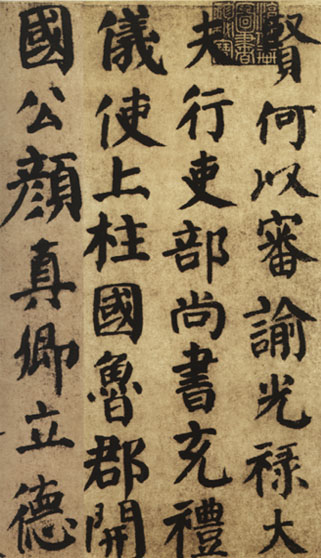 賢何以審諭光祿大
夫行吏部尚書充禮
儀使上柱國魯郡開
國公顏真卿立德